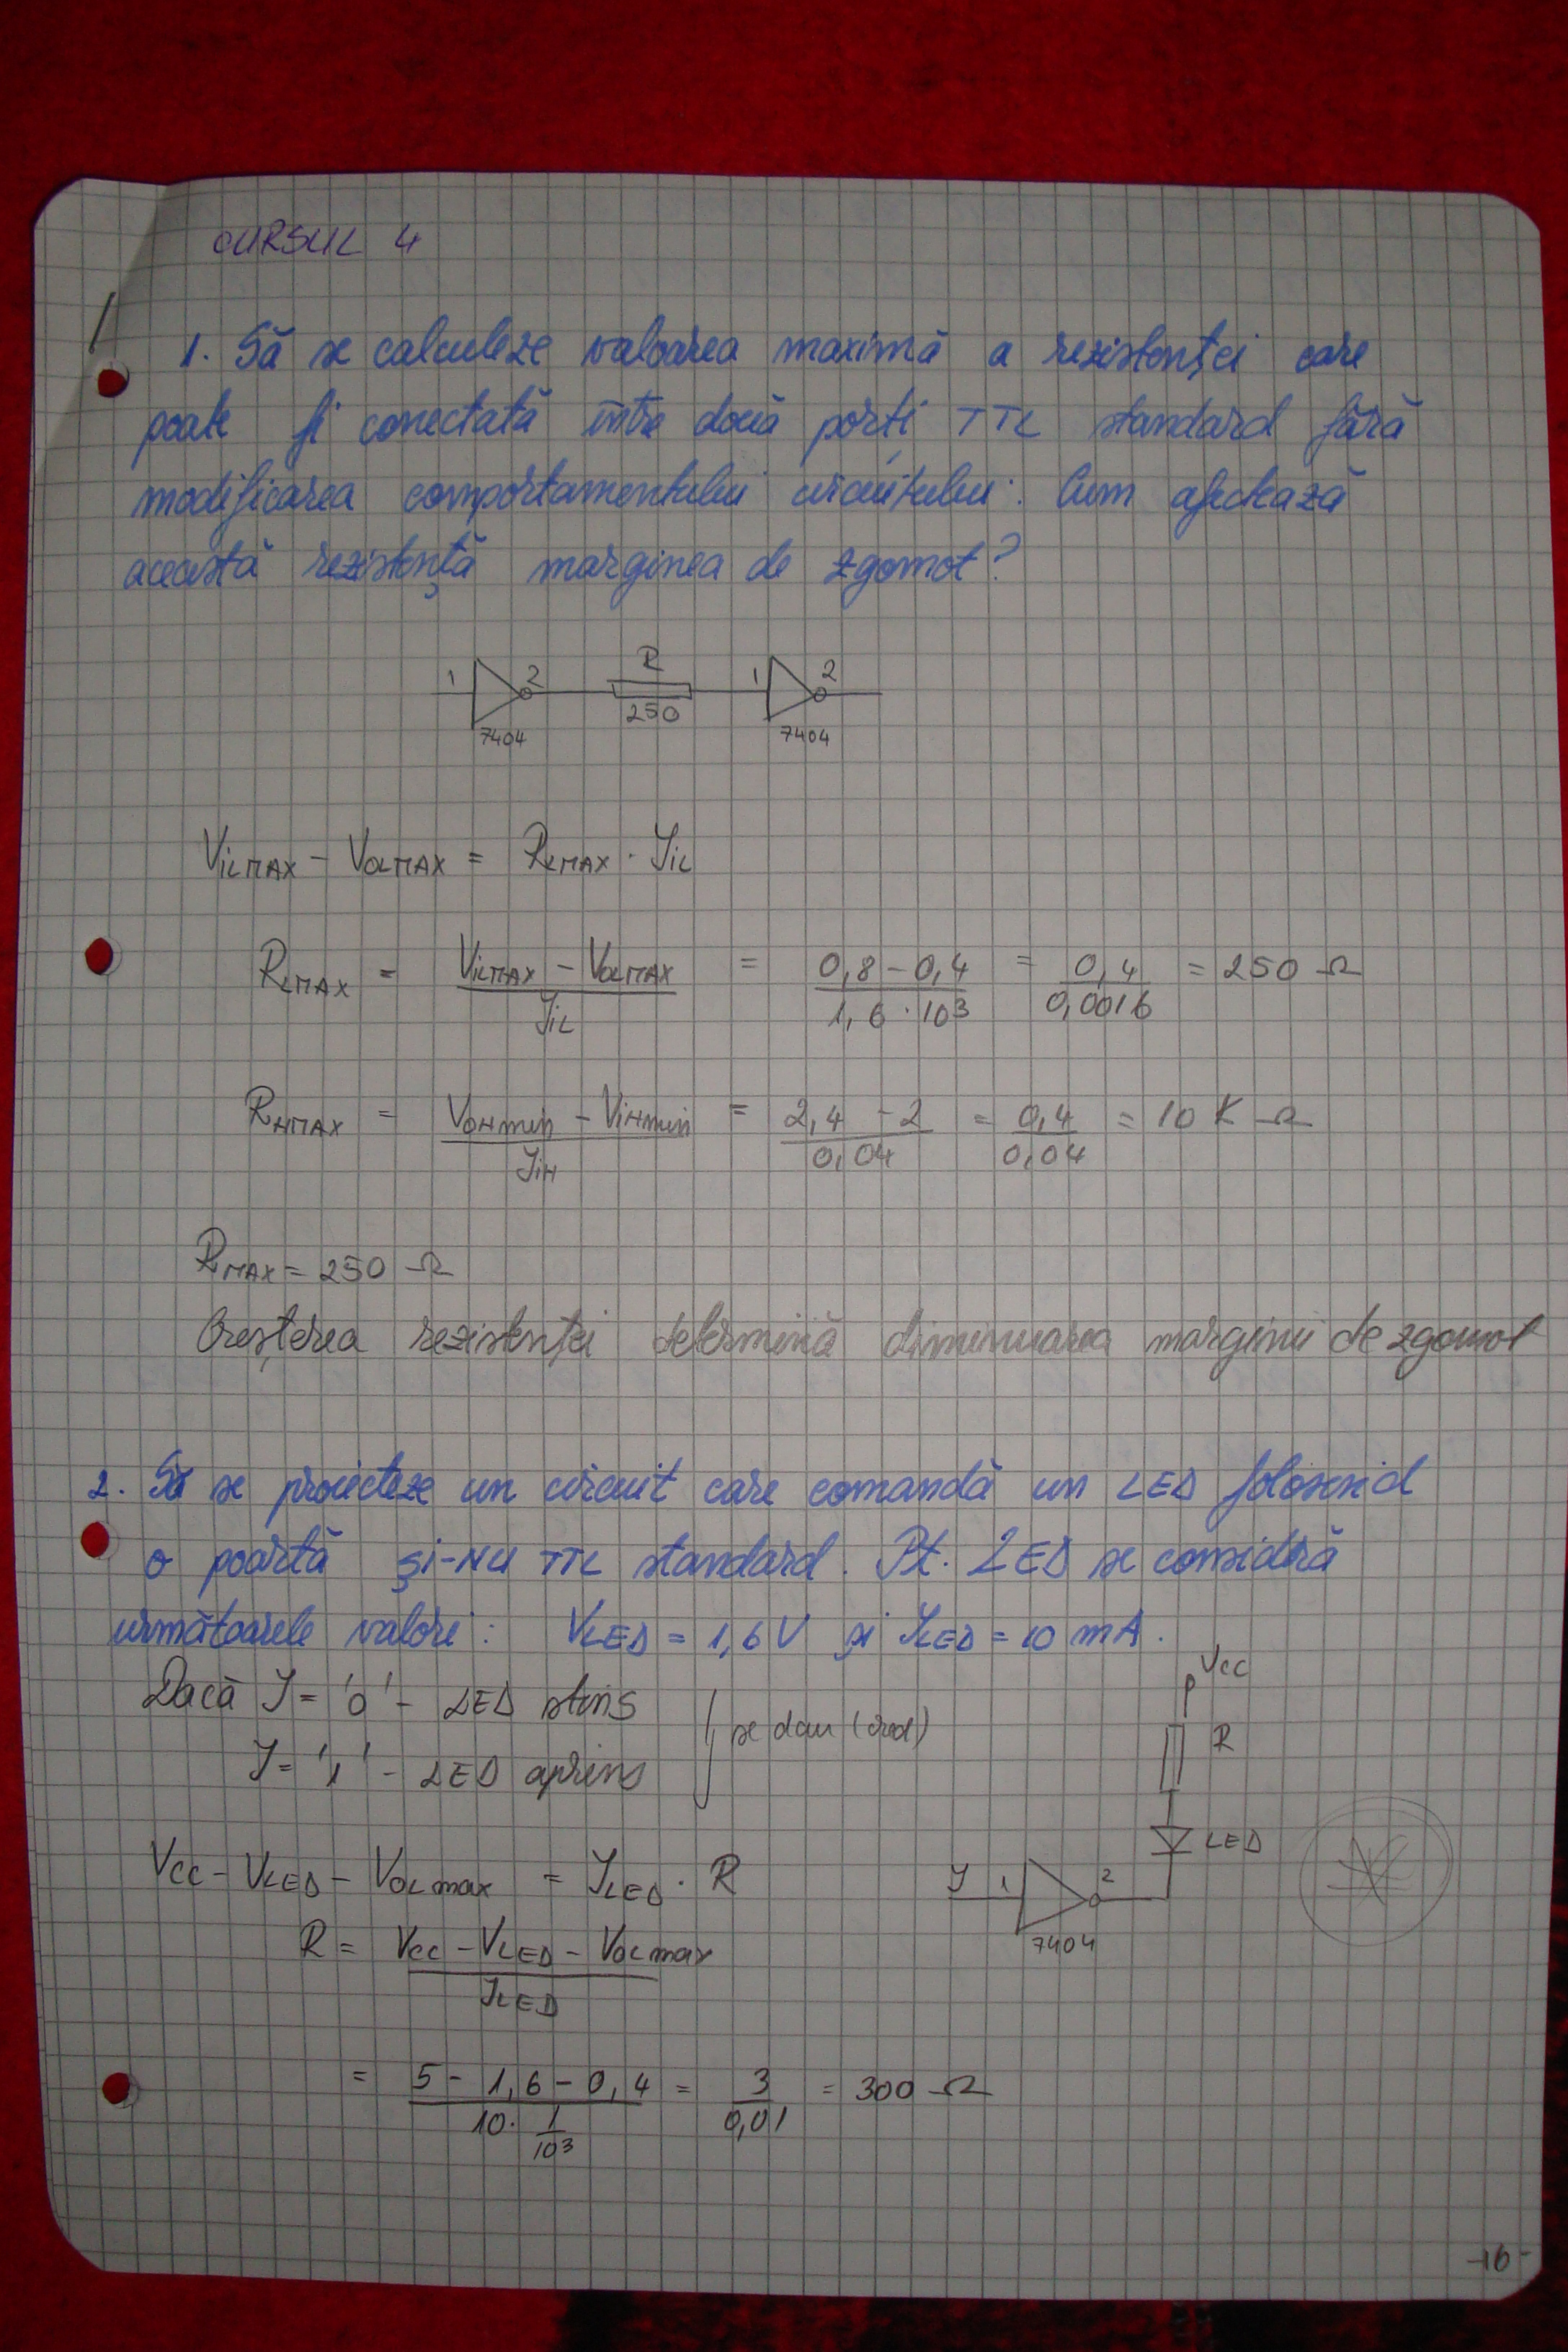 CURSUL 4
1. Să se calculeze valoarea maximă a rezistenței care
poate fi conectată între două porți TTL standard fără
modificarea comportamentului circuitului. Cum afectează
această rezistență marginea de zgomot?
1 2 R 1 2
250
7404 7404
VILMAX - VOLMAX = RLMAX · IIL
RLMAX = (VILMAX - VOLMAX) / IIL = (0,8 - 0,4) / (1,6 · 10³) = 0,4 / 0,0016 = 250 Ω
RHMAX = (VOHmin - VIHmin) / IIH = (2,4 - 2) / 0,04 = 0,4 / 0,04 = 10 K Ω
RMAX = 250 Ω
Creșterea rezistenței determină diminuarea marginii de zgomot
2. Să se proiecteze un circuit care comandă un LED folosind
o poartă ȘI-NU TTL standard. Pt. LED se consideră
următoarele valori: VLED = 1,6 V și ILED = 10 mA.
Dacă I = '0' - LED stins
I = '1' - LED aprins
se dau (cred)
Vcc
R
LED
I 1 2
7404
Vcc - VLED - VOLmax = ILED · R
R = (Vcc - VLED - VOLmax) / ILED
= (5 - 1,6 - 0,4) / (10 · 1/10³) = 3 / 0,01 = 300 Ω
-16-